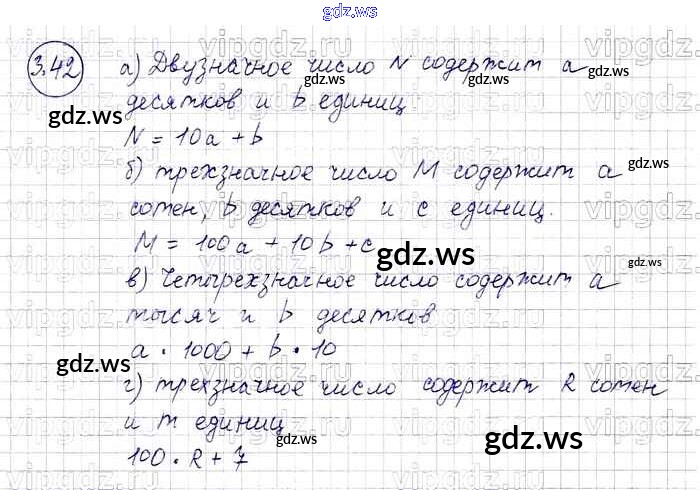 gdz.ws
3.42 а) Двузначное число N содержит a
десятков и b единиц
N = 10a + b
б) трехзначное число M содержит a
сотен, b десятков и c единиц.
M = 100a + 10b + c
в) Четырехзначное число содержит a
тысяч и b десятков
a · 1000 + b · 10
г) трехзначное число содержит R сотен
и m единиц
100 · R + 7